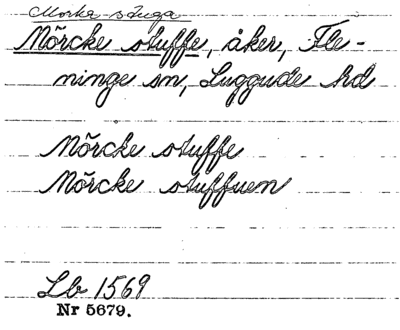 Morka-stuga
Mörcke stuffe, åker, Fle-
ninge sn, Luggude hd
Mörcke stuffe
Mörcke stuffuem
Lb 1569
Nr 5679.